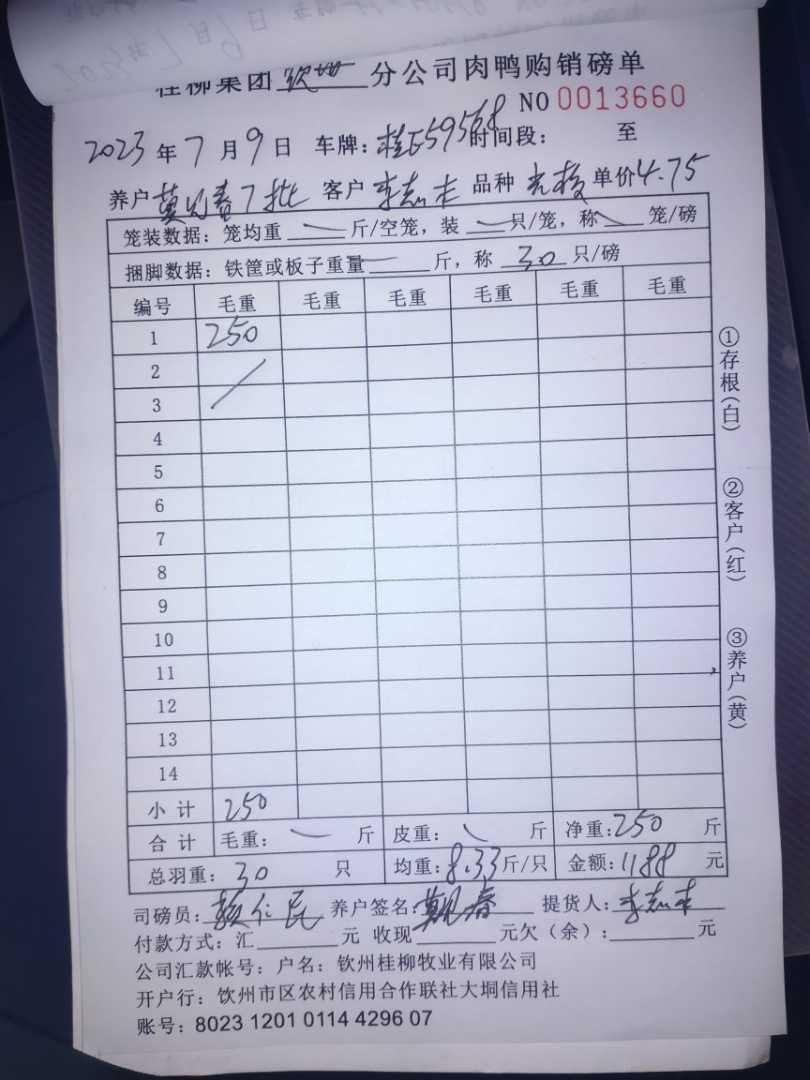 桂柳集团 钦州 分公司肉鸭购销磅单
NO 0013660
2023 年 7 月 9 日 车牌: 桂E59568 时间段: 至
养户 莫 春7批 客户 李志 品种 单价4.75
笼装数据: 笼均重 斤/空笼, 装 只/笼, 称 笼/磅
捆脚数据: 铁筐或板子重量 斤, 称 30 只/磅
编号 毛重 毛重 毛重 毛重 毛重 毛重
1 250
2
3
4
5
6
7
8
9
10
11
12
13
14
小计 250
合计 毛重: 斤 皮重: 斤 净重: 250 斤
总羽重: 30 只 均重: 8.33 斤/只 金额: 1188 元
司磅员: 仁民 养户签名: 春 提货人: 李志
付款方式: 汇 元 收现 元欠(余): 元
公司汇款帐号: 户名: 钦州桂柳牧业有限公司
开户行: 饮州市区农村信用合作联社大垌信用社
账号: 8023 1201 0114 4296 07
①存根(白)
②客户(红)
③养户(黄)